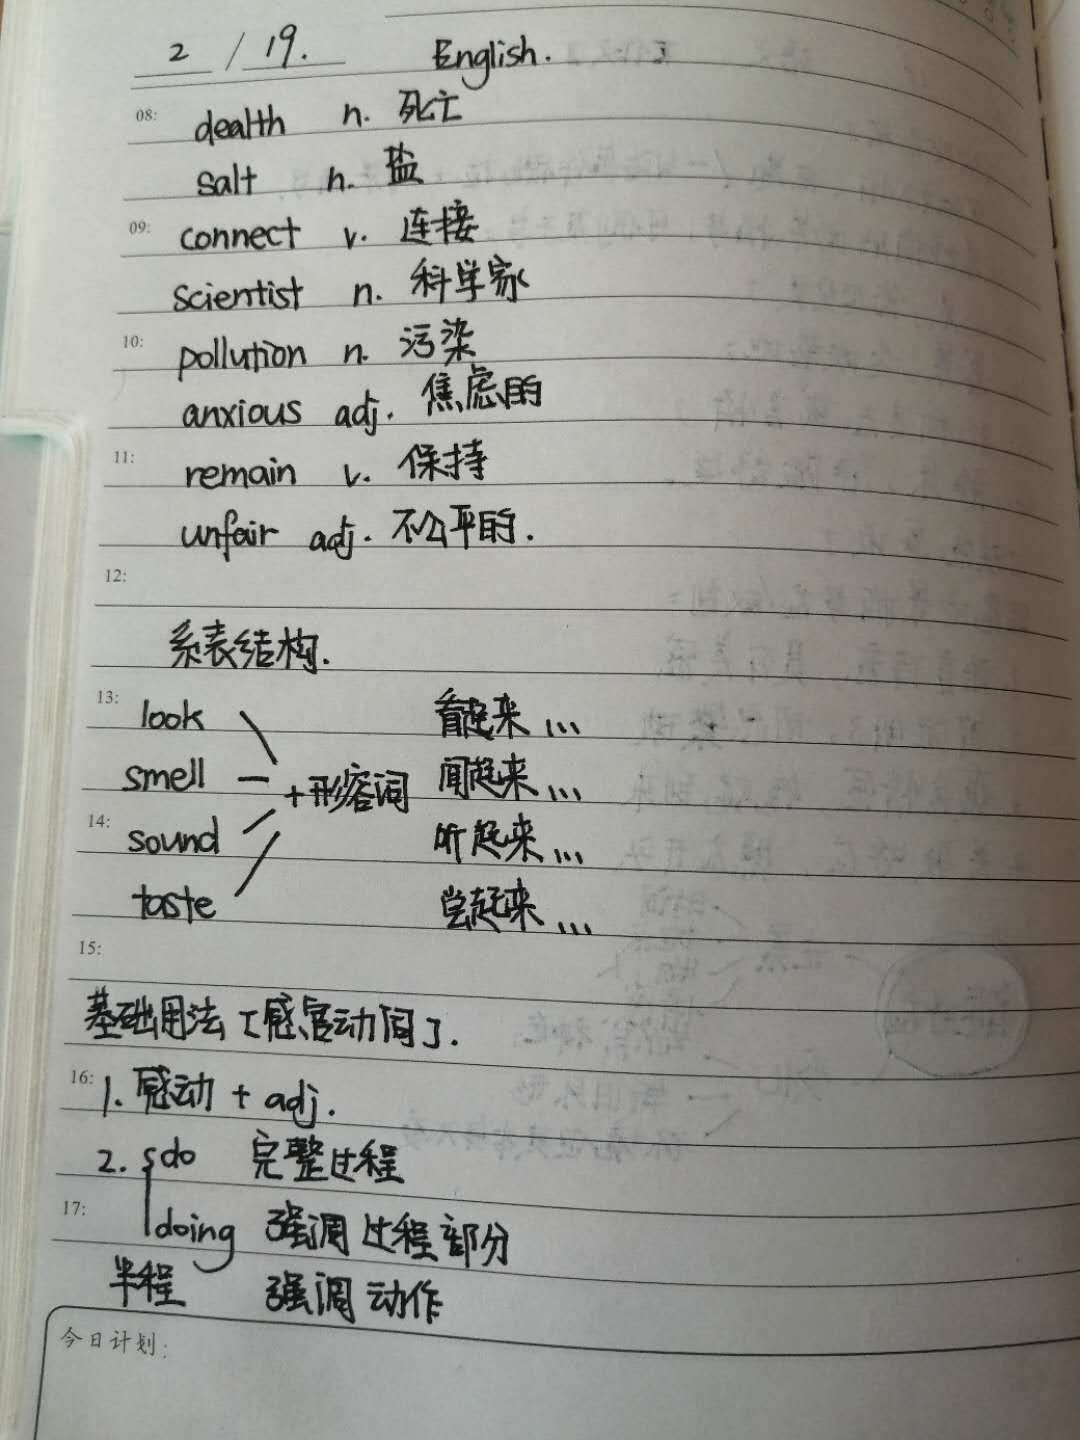 2 / 19. English.
08: dealth n. 死亡
salt n. 盐
09: connect v. 连接
scientist n. 科学家
10: pollution n. 污染
anxious adj. 焦虑的
11: remain v. 保持
unfair adj. 不公平的.
12:
系表结构.
13: look 看起来...
smell +形容词 闻起来...
14: sound 听起来...
taste 尝起来...
15:
基础用法 [感官动词].
16: 1. 感动 + adj.
2. do 完整过程
17: doing 强调过程部分
半程 强调动作
今日计划: